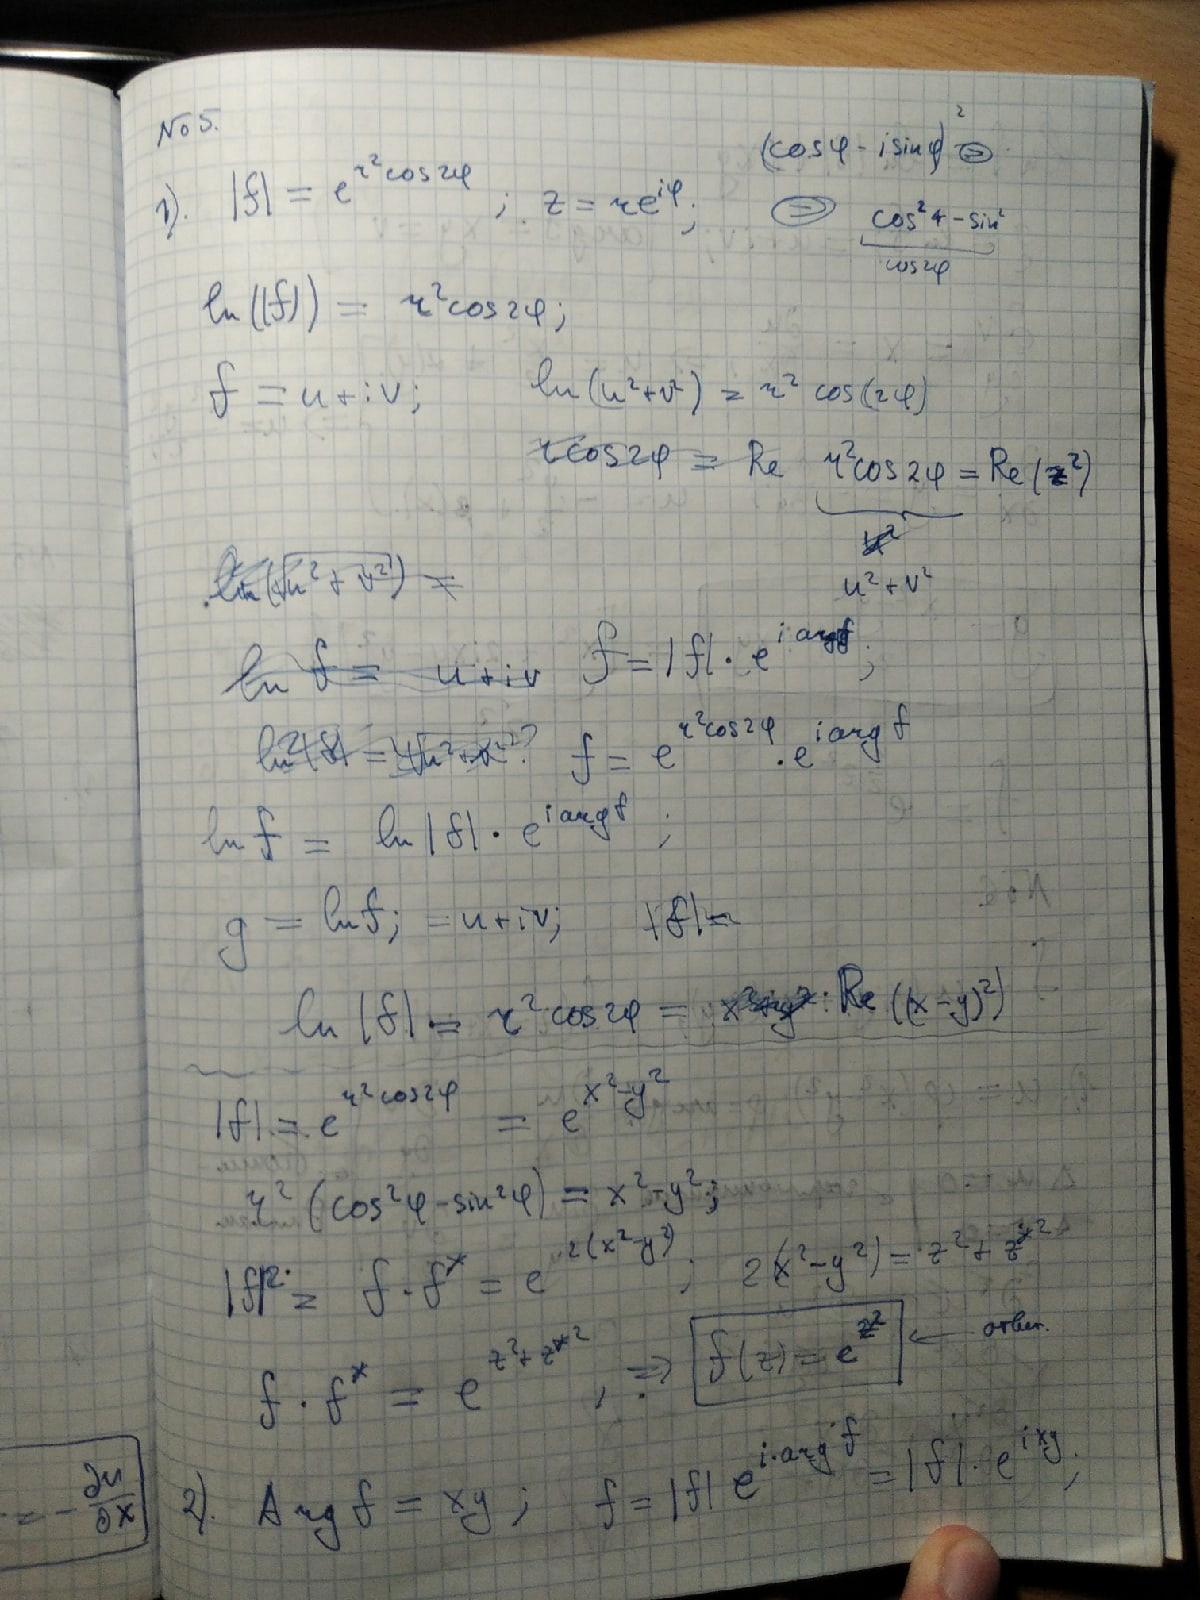 №5.
(cosφ - i sinφ)² ⊜
1). |f| = e^{r²cos2φ}; z = re^{iφ}; ⊜ cos²φ - sin²
cos2φ
ln(|f|) = r²cos2φ;
f = u + iv; ln(u²+v²) = r² cos(2φ)
rcos2φ = Re r²cos2φ = Re(z²)
u²
u² + v²
ln(√u² + v²) =
ln f = u + iv f = |f| · e^{i arg f};
f = e^{r²cos2φ} · e^{i arg f}
ln f = ln|f| · e^{i arg f};
g = ln f; = u + iv; |f| =
ln|f| = r²cos2φ = Re((x-y)²)
|f| = e^{r²cos2φ} = e^{x²-y²}
r²(cos²φ - sin²φ) = x² - y²;
|f|² = f · f* = e^{2(x²-y²)}; 2(x²-y²) = z² + z*²
f · f* = e^{z²+z*²}, ⇒ f(z) = e^{z²} ← ответ.
2). Arg f = xy; f = |f| e^{i·arg f} = |f| · e^{ixy};
= - ∂u/∂x